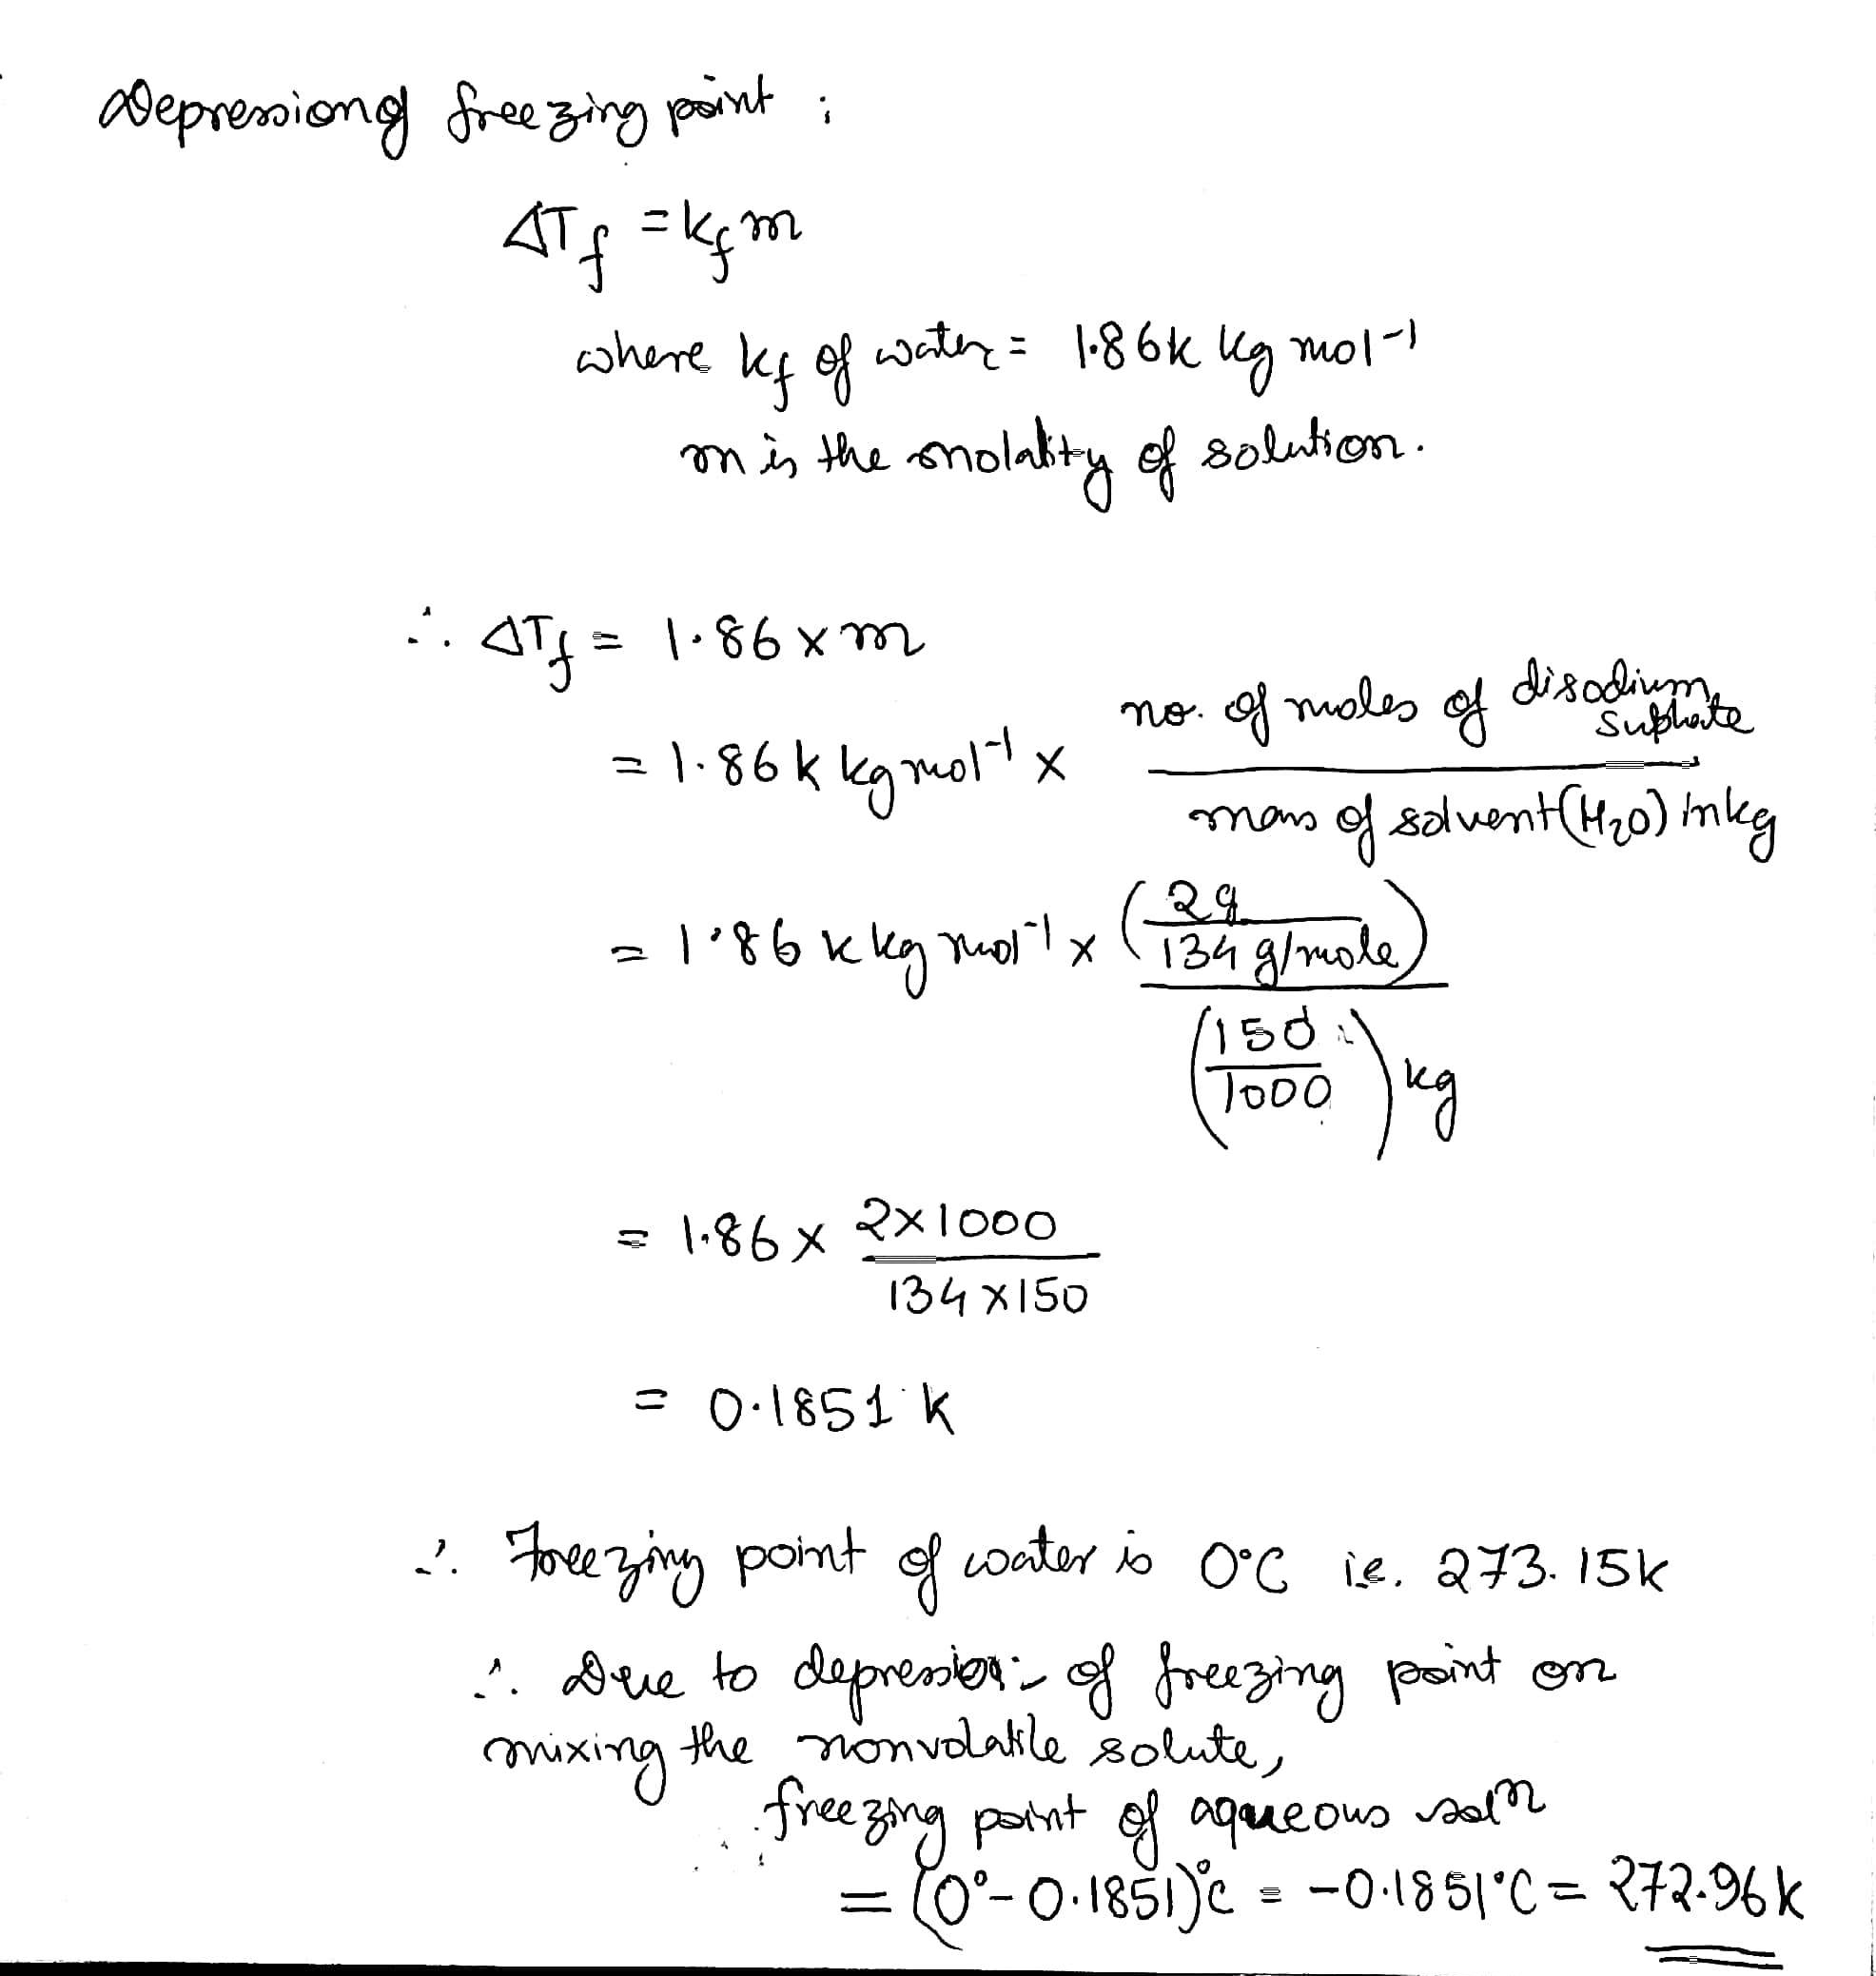 Depression of freezing point :
ΔTf = kf m
where kf of water = 1.86k kg mol⁻¹
m is the molality of solution.
∴ ΔTf = 1.86 × m
= 1.86 k kg mol⁻¹ × no. of moles of disodium Sulphate / mass of solvent (H₂O) in kg
= 1.86 k kg mol⁻¹ × (2g / 134 g/mole) / (150 / 1000) kg
= 1.86 × 2×1000 / 134×150
= 0.1851 k
∴ Freezing point of water is 0°C i.e. 273.15k
∴ Due to depression of freezing point on
mixing the nonvolatile solute,
freezing point of aqueous solⁿ
= (0° - 0.1851)°C = -0.1851°C = 272.96k